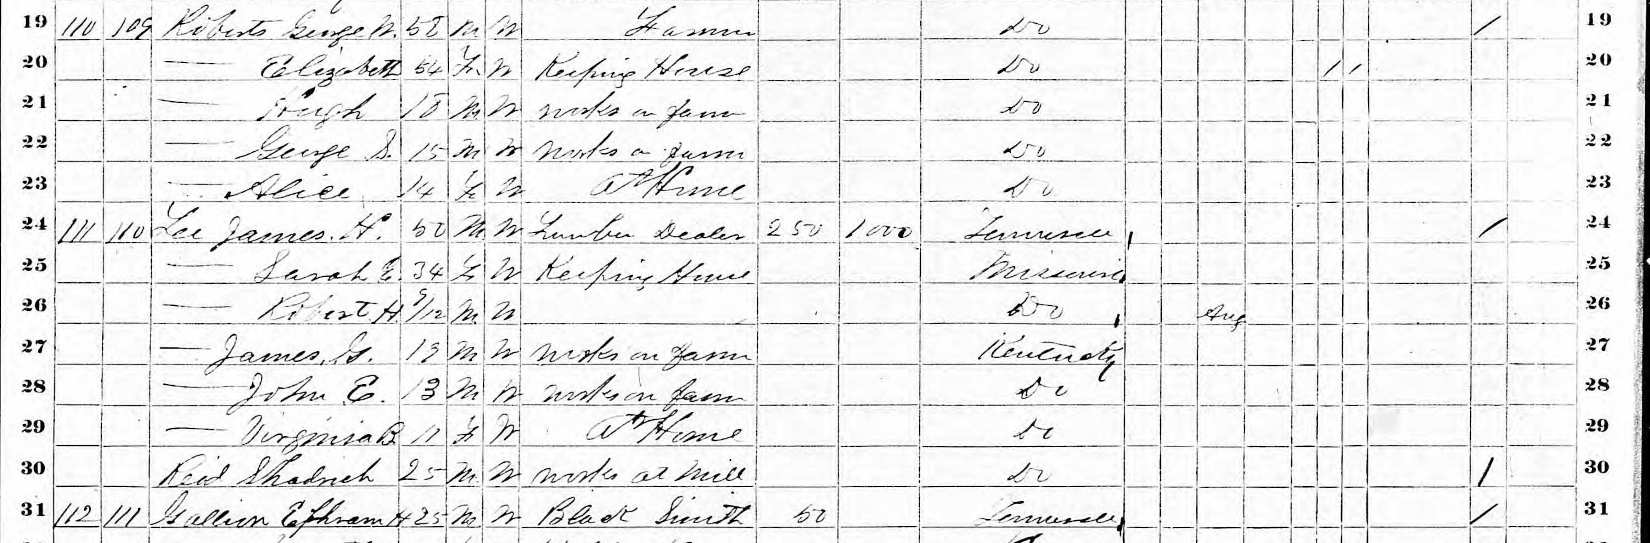 19 110 109 Roberts George W. 58 M W Farmer Do / 19
20 — Elizabeth 54 F W Keeping House Do / / 20
21 — Hugh 18 M W works on farm Do 21
22 — George S. 15 M W works on farm Do 22
23 — Alice 14 F W At Home Do 23
24 111 110 Lee James. H. 50 M W Lumber Dealer 250 1000 Tennessee / 24
25 — Sarah E. 34 F W Keeping House Missouri 25
26 — Robert H. 9/12 M W Do Aug 26
27 — James. G. 19 M W works on farm Kentucky 27
28 — John E. 13 M W works on farm Do 28
29 — Virginia B. 11 F W At Home Do 29
30 Reid Shadrich 25 M W works at Mill Do / 30
31 112 111 Gallion Ephram H 25 M W Black Smith 50 Tennessee / 31